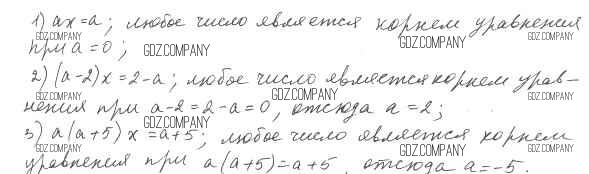 1) ax=a; любое число является корнем уравнения
GDZ.COMPANY GDZ.COMPANY GDZ.COMPANY
при a=0; GDZ.COMPANY
2) (a-2)x=2-a; любое число является корнем урав-
GDZ.COMPANY GDZ.COMPANY GDZ.COMPANY
нения при a-2=2-a=0, отсюда a=2;
GDZ.COMPANY
3) a(a+5)x=a+5; любое число является корнем
GDZ.COMPANY GDZ.COMPANY GDZ.COMPANY
уравнения при a(a+5)=a+5, отсюда a=-5.